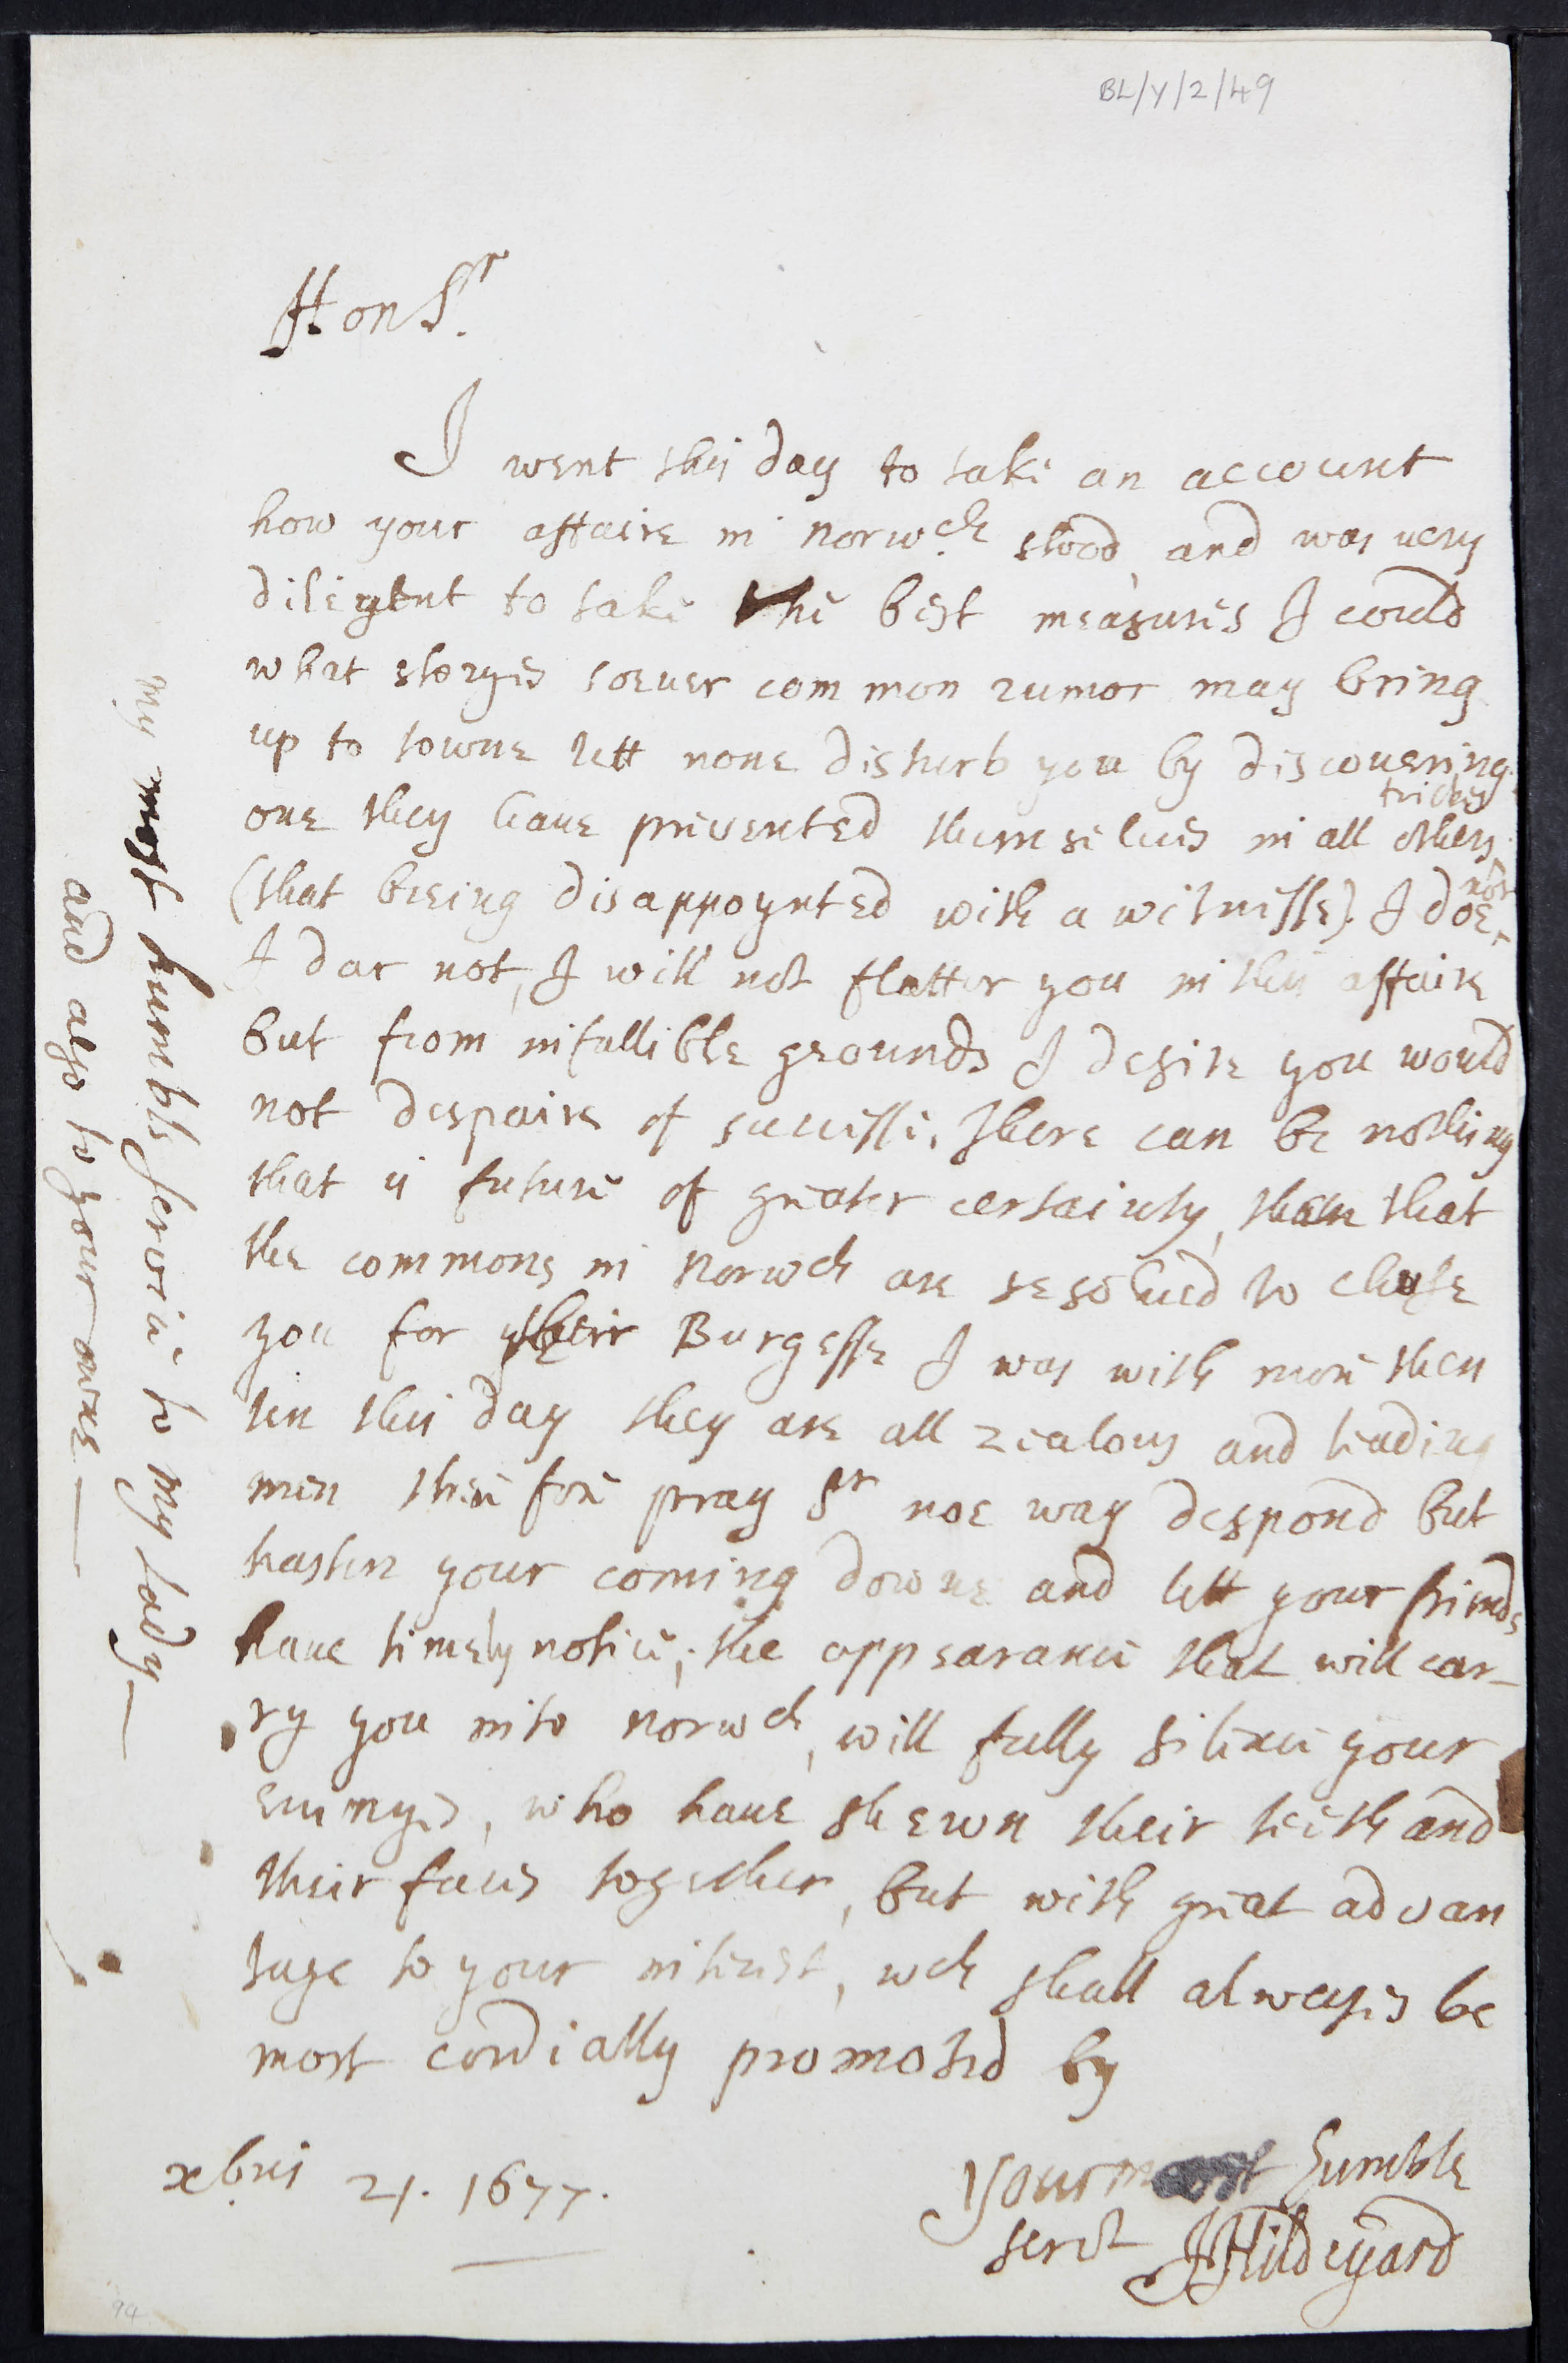 BL/Y/2/49
Hon Sr.
I went this day to take an account
how your affaire in Norwch stood, and was very
diligent to take the best measures I could
what storyes soever common rumor may bring
up to towne lett none disturb you by discovering
one they have prevented themselves in all others tricks
(that being disappoynted with a witnesse). I doe not
I dar not, I will not flatter you in this affaire
but from infallible grounds I desire you would
not despaire of successe. There can be nothing
that is future of greater certainty, then that
the commons in Norwch are resolued to chuse
you for their Burgesse I was with more then
ten this day they are all zealous and leading
men therefore pray Sr noe way despond but
hasten your coming downe and lett your friends
haue timely notice; the appearance that will car-
ry you into norwch, will fully silence your
enimyes, who haue shewn their teeth and
their faces together, but with great advan
tage to your interest, wch shall alwayes be
most cordially promoted by
your most humble
servt JHildeyard
xbris 21. 1677.
my most humble service to my lady
and also to your owne
94